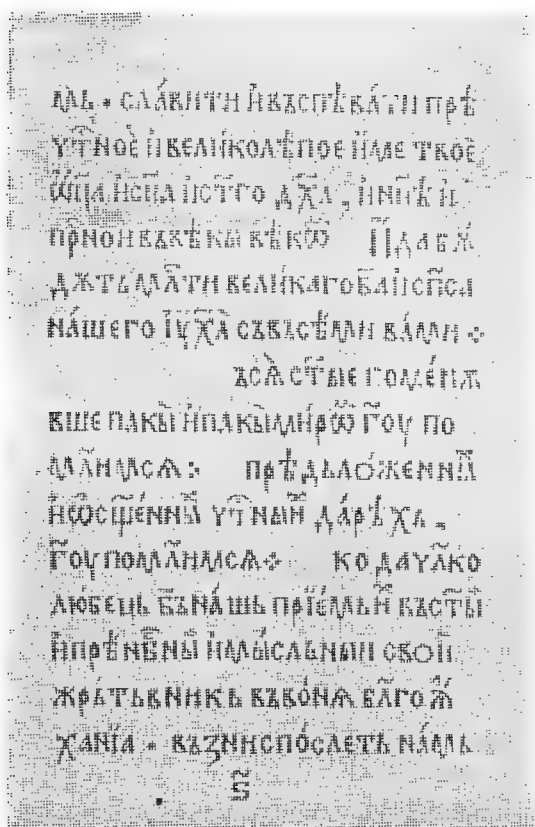 мь · славити и въспѣвати прѣ
ч҃тное и великолѣпое имѧ твое
ѡ҃ца и с҃на и ст҃го дх҃а , и нн҃ѣ и
пр҃но и въ вѣкы вѣкѡ҃ И да бѫ
дѫть мл҃ти великаго б҃а и сп҃са
нашего іу҃ х҃а съ въсѣми вами ⁘
въсѧ ст҃ые поменѫ
вше пакы и пакы мирѡ҃ г҃оу по
мл҃имсѧ ⁘ прѣдъложенны
и ѡсщ҃енны ч҃тныи дарѣхъ .
г҃оу помл҃имсѧ ⁘ ко да чл҃ко
любець б҃ь нашь пріемь и въ ст҃ы
и прѣнб҃ны и мысльныи свои
жрътьвникь въ вонѧ бл҃гоѫ
ханіа · възниспослеть намь
ѕ